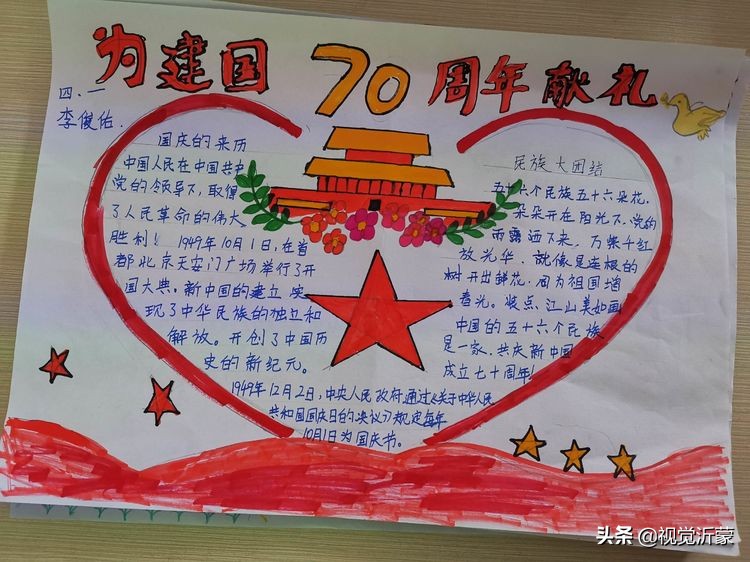 为建国 70 周年献礼
四、一
李俊佑.
国庆的来历
中国人民在中国共产
党的领导下,取得
了人民革命的伟大
胜利! 1949年10月1日,在首
都北京天安门广场举行了开
国大典。新中国的建立实
现了中华民族的独立和
解放。开创了中国历
史的新纪元。
1949年12月2日,中央人民政府通过《关于中华人民
共和国国庆日的决议》规定每年
10月1日为国庆节。
民族大团结
五十六个民族五十六朵花.
朵朵开在阳光下.党的
雨露洒下来,万紫千红
放光华,就像是连根的
树开出鲜花,同为祖国增
春光。装点江山美如画
中国的五十六个民族
是一家.共庆新中国
成立七十周年!
头条@视觉沂蒙